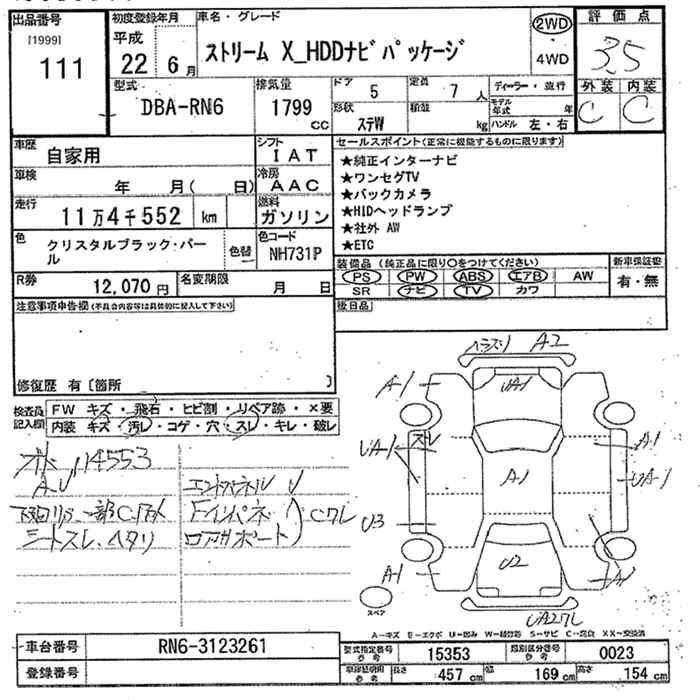 出品番号
[1999]
111
初度登録年月
平成
22 6月
車名・グレード
ストリーム X_HDDナビパッケージ
2WD
4WD
評価点
3.5
外装 内装
C C
型式
DBA-RN6
排気量
1799 cc
ドア 5
定員 7 人
形状 ステW
積載 kg
ディーラー・並行
モデル年式 年
ハンドル 左・右
車歴
自家用
シフト
IAT
車検
年 月( 日)
冷房
AAC
走行
11万4千552 km
燃料
ガソリン
色
クリスタルブラック・パール
色替
色コード
NH731P
R券
12,070 円
名変期限
月 日
セールスポイント(正常に機能するものに限ります)
★純正インターナビ
★ワンセグTV
★バックカメラ
★HIDヘッドランプ
★社外 AW
★ETC
装備品 (純正品に限り○をつけてください)
PS PW ABS エアB AW
SR ナビ TV カワ
新車保証書
有・無
後日品
注意事項申告欄(不具合内容等は具体的に記入して下さい)
修復歴 有〔箇所 〕
検査員記入欄
FW キズ・飛石・ヒビ割・リペア跡・×要
内装 キズ・汚レ・コゲ・穴・スレ・キレ・破レ
114553
AU
エンドパネル U
Fインパネ
ロアサポート
Cワレ
シートスレ、ヘタリ
A2
A-1
UA1
UA-1
スレ
A1
A.1
UA-1
U3
A-1
U2
A1
スペア
A-キズ E-エクボ U-凹み W-補修跡 S-サビ C-腐食 XX-交換済
車台番号 RN6-3123261
登録番号
型式指定番号 参考 15353
類別区分番号 参考 0023
車庫証明用 参考 長さ 457 cm 幅 169 cm 高さ 154 cm